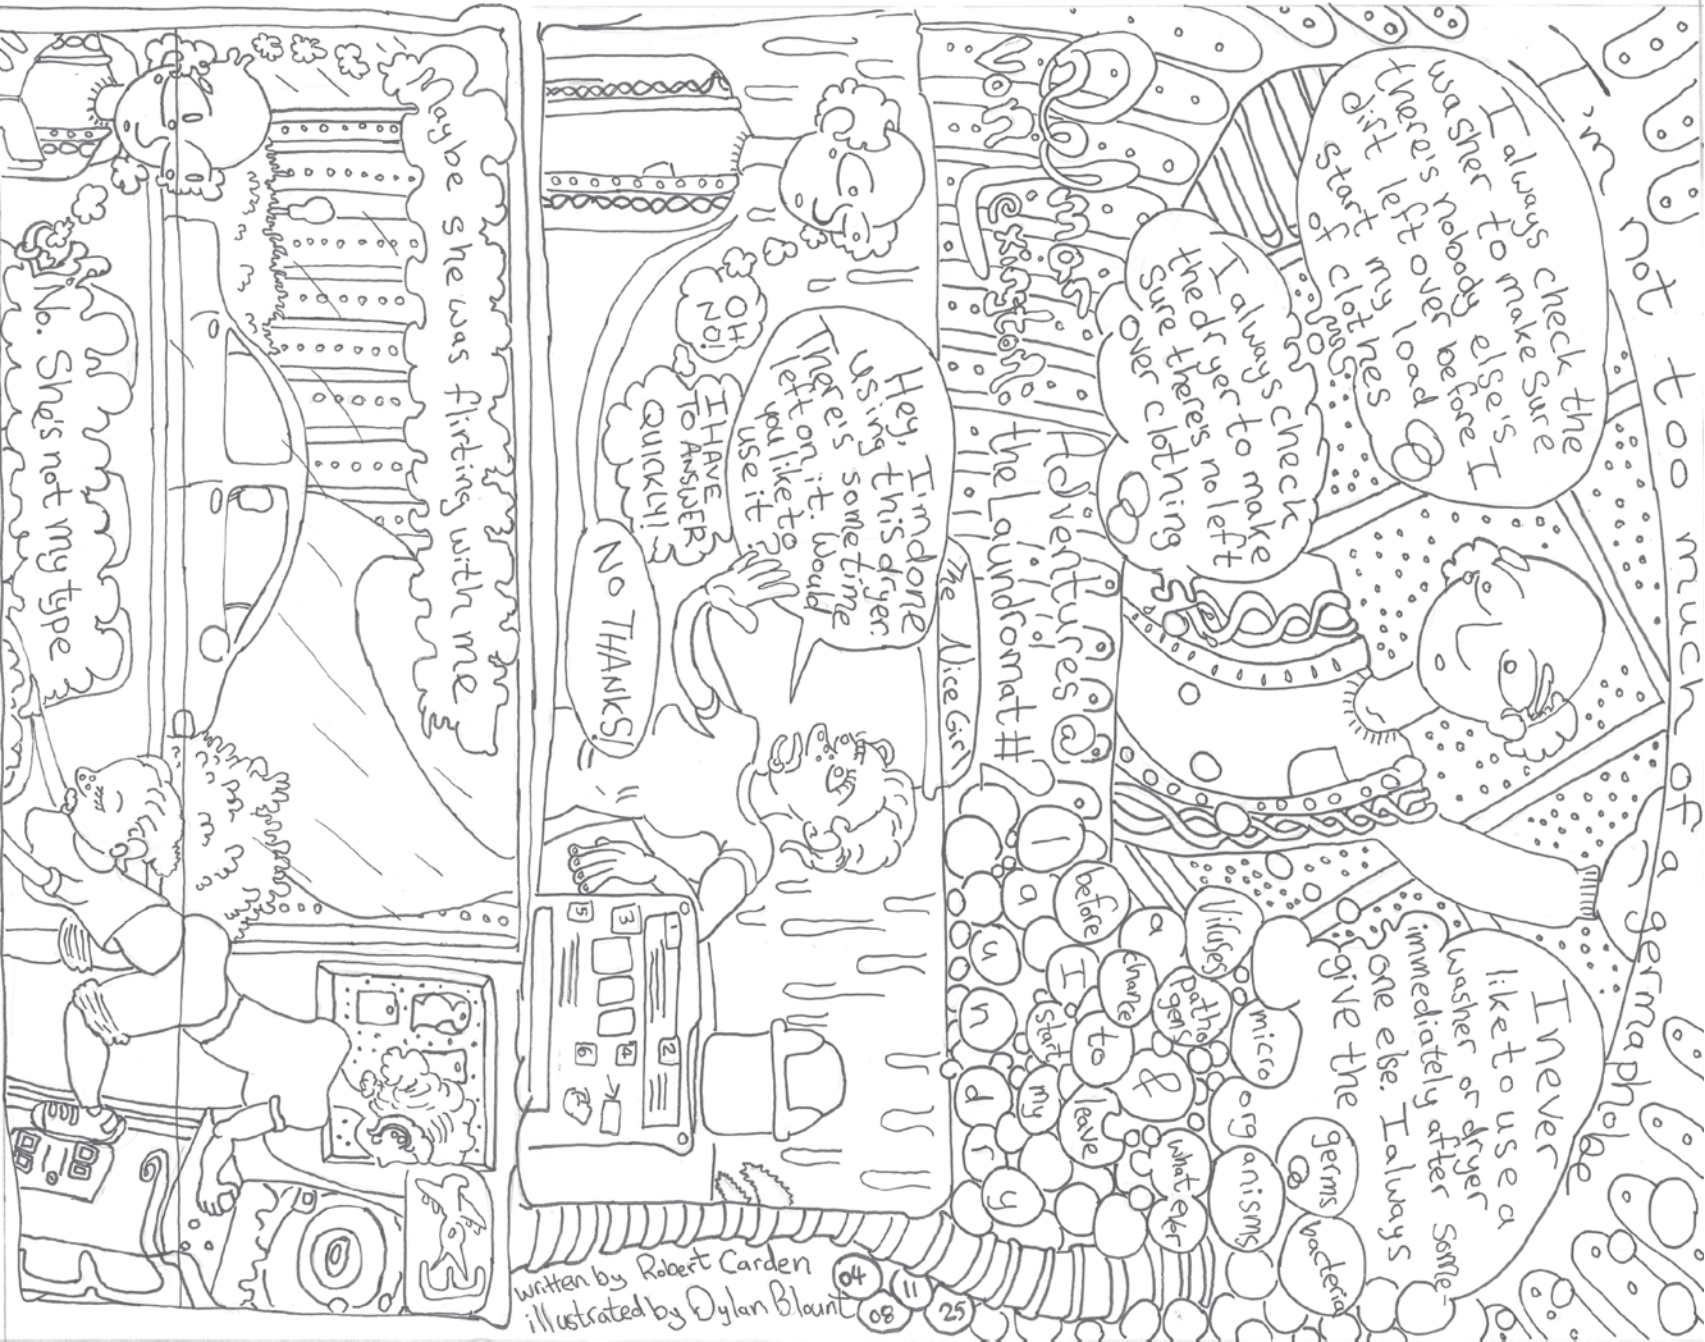 I'm not too much of a germaphobe
I always check the
washer to make sure
there's nobody else's
dirt left over before I
start my load
of clothes
I always check
the dryer to make
sure there's no left
over clothing
I never
like to use a
washer or dryer
immediately after some-
one else. I always
give the
germs
bacteria
micro
organisms
Viruses
patho
gens
&
whatever
a
chance
to
leave
before
I
start
my
l
a
u
n
d
r
y
Simon
Von
Lexington
Adventures @
the Laundromat #
The Nice Girl
Hey, I'm done
using this dryer.
There's some time
left on it. Would
you like to
use it?
OH
NO!
I HAVE
TO ANSWER
QUICKLY!
NO THANKS!
1
2
3
4
5
6
Maybe she was flirting with me
No. She's not my type
written by Robert Carden
illustrated by Dylan Blount
04
11
08
25